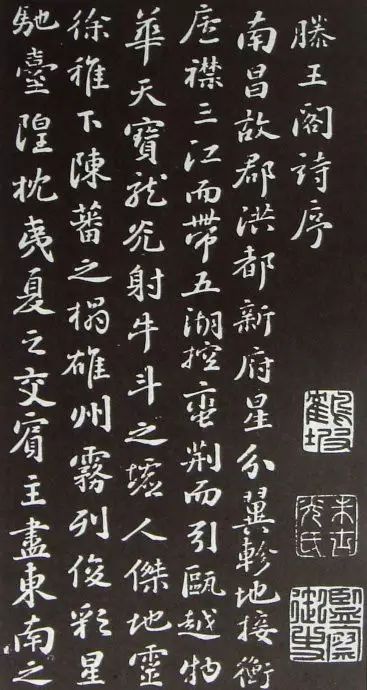 滕王閣詩序
南昌故郡洪都新府星分翼軫地接衡
廬襟三江而帶五湖控蠻荊而引甌越物
華天寶龍光射牛斗之墟人傑地靈
徐稚下陳蕃之榻雄州霧列俊彩星
馳臺隍枕夷夏之交賓主盡東南之